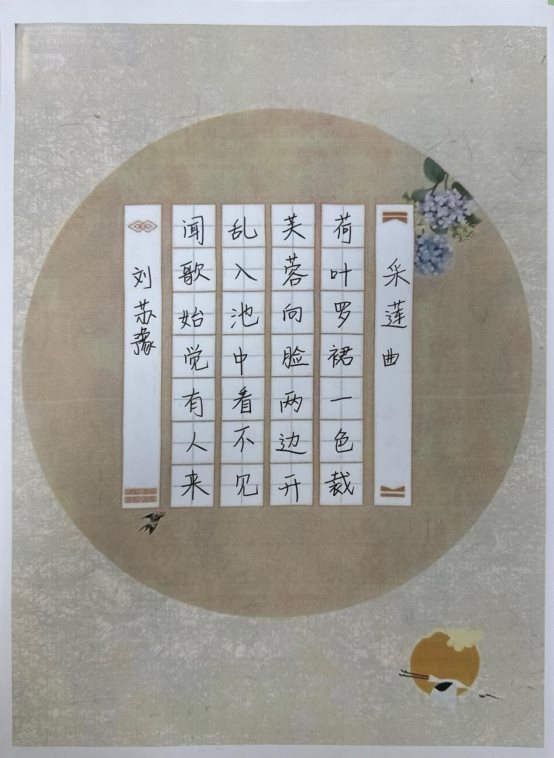 采莲曲
荷叶罗裙一色裁
芙蓉向脸两边开
乱入池中看不见
闻歌始觉有人来
刘苏豫